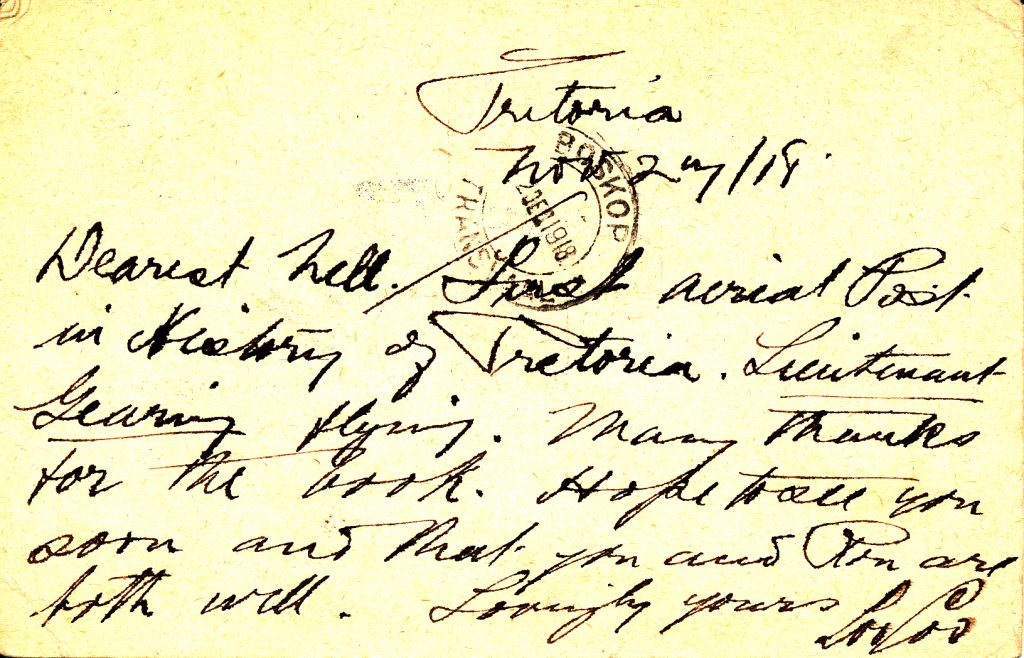 Pretoria
Nov 2 /18
BOSKOP
2 DEC 1918
TRANS
Dearest Nell. First aerial Post
in History of Pretoria. Lieutenant
Gearing flying. Many thanks
for the book. Hope to see you
soon and that you and Ron are
both well. Lovingly yours